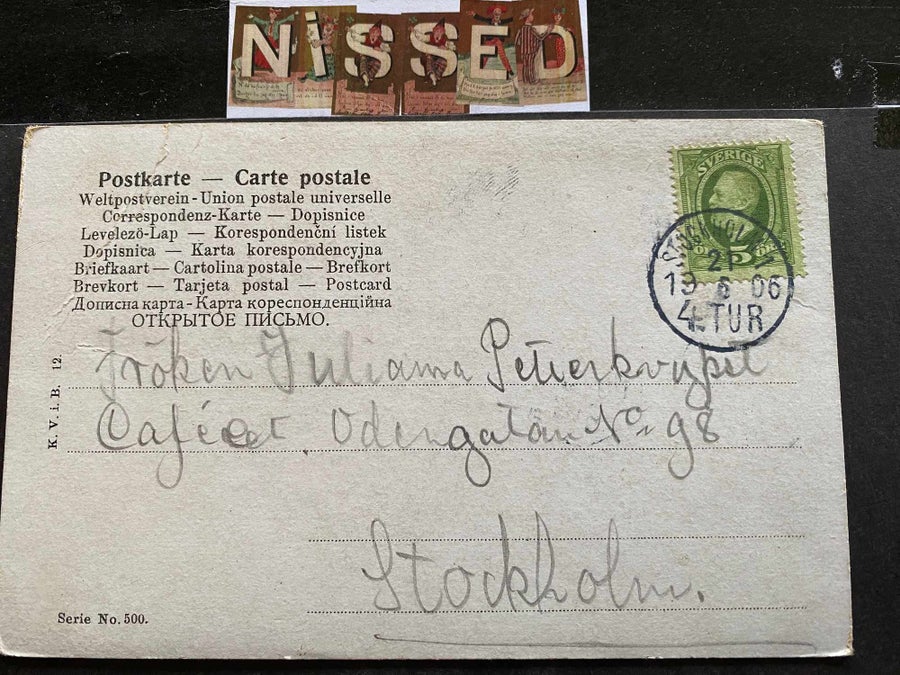 NiSSED
Postkarte — Carte postale
Weltpostverein - Union postale universelle
Correspondenz-Karte — Dopisnice
Levelező-Lap — Korespondenční listek
Dopisnica — Karta korespondencyjna
Briefkaart — Cartolina postale — Brefkort
Brevkort — Tarjeta postal — Postcard
Дописна карта - Карта кореспонденційна
ОТКРЫТОЕ ПИСЬМО.
SVERIGE
5
STOCKHOLM
21
19 6 06
4.TUR
K. V. i. B. 12.
Fröken Juliana
Caféet Odengatan No 98
Stockholm.
Serie No. 500.